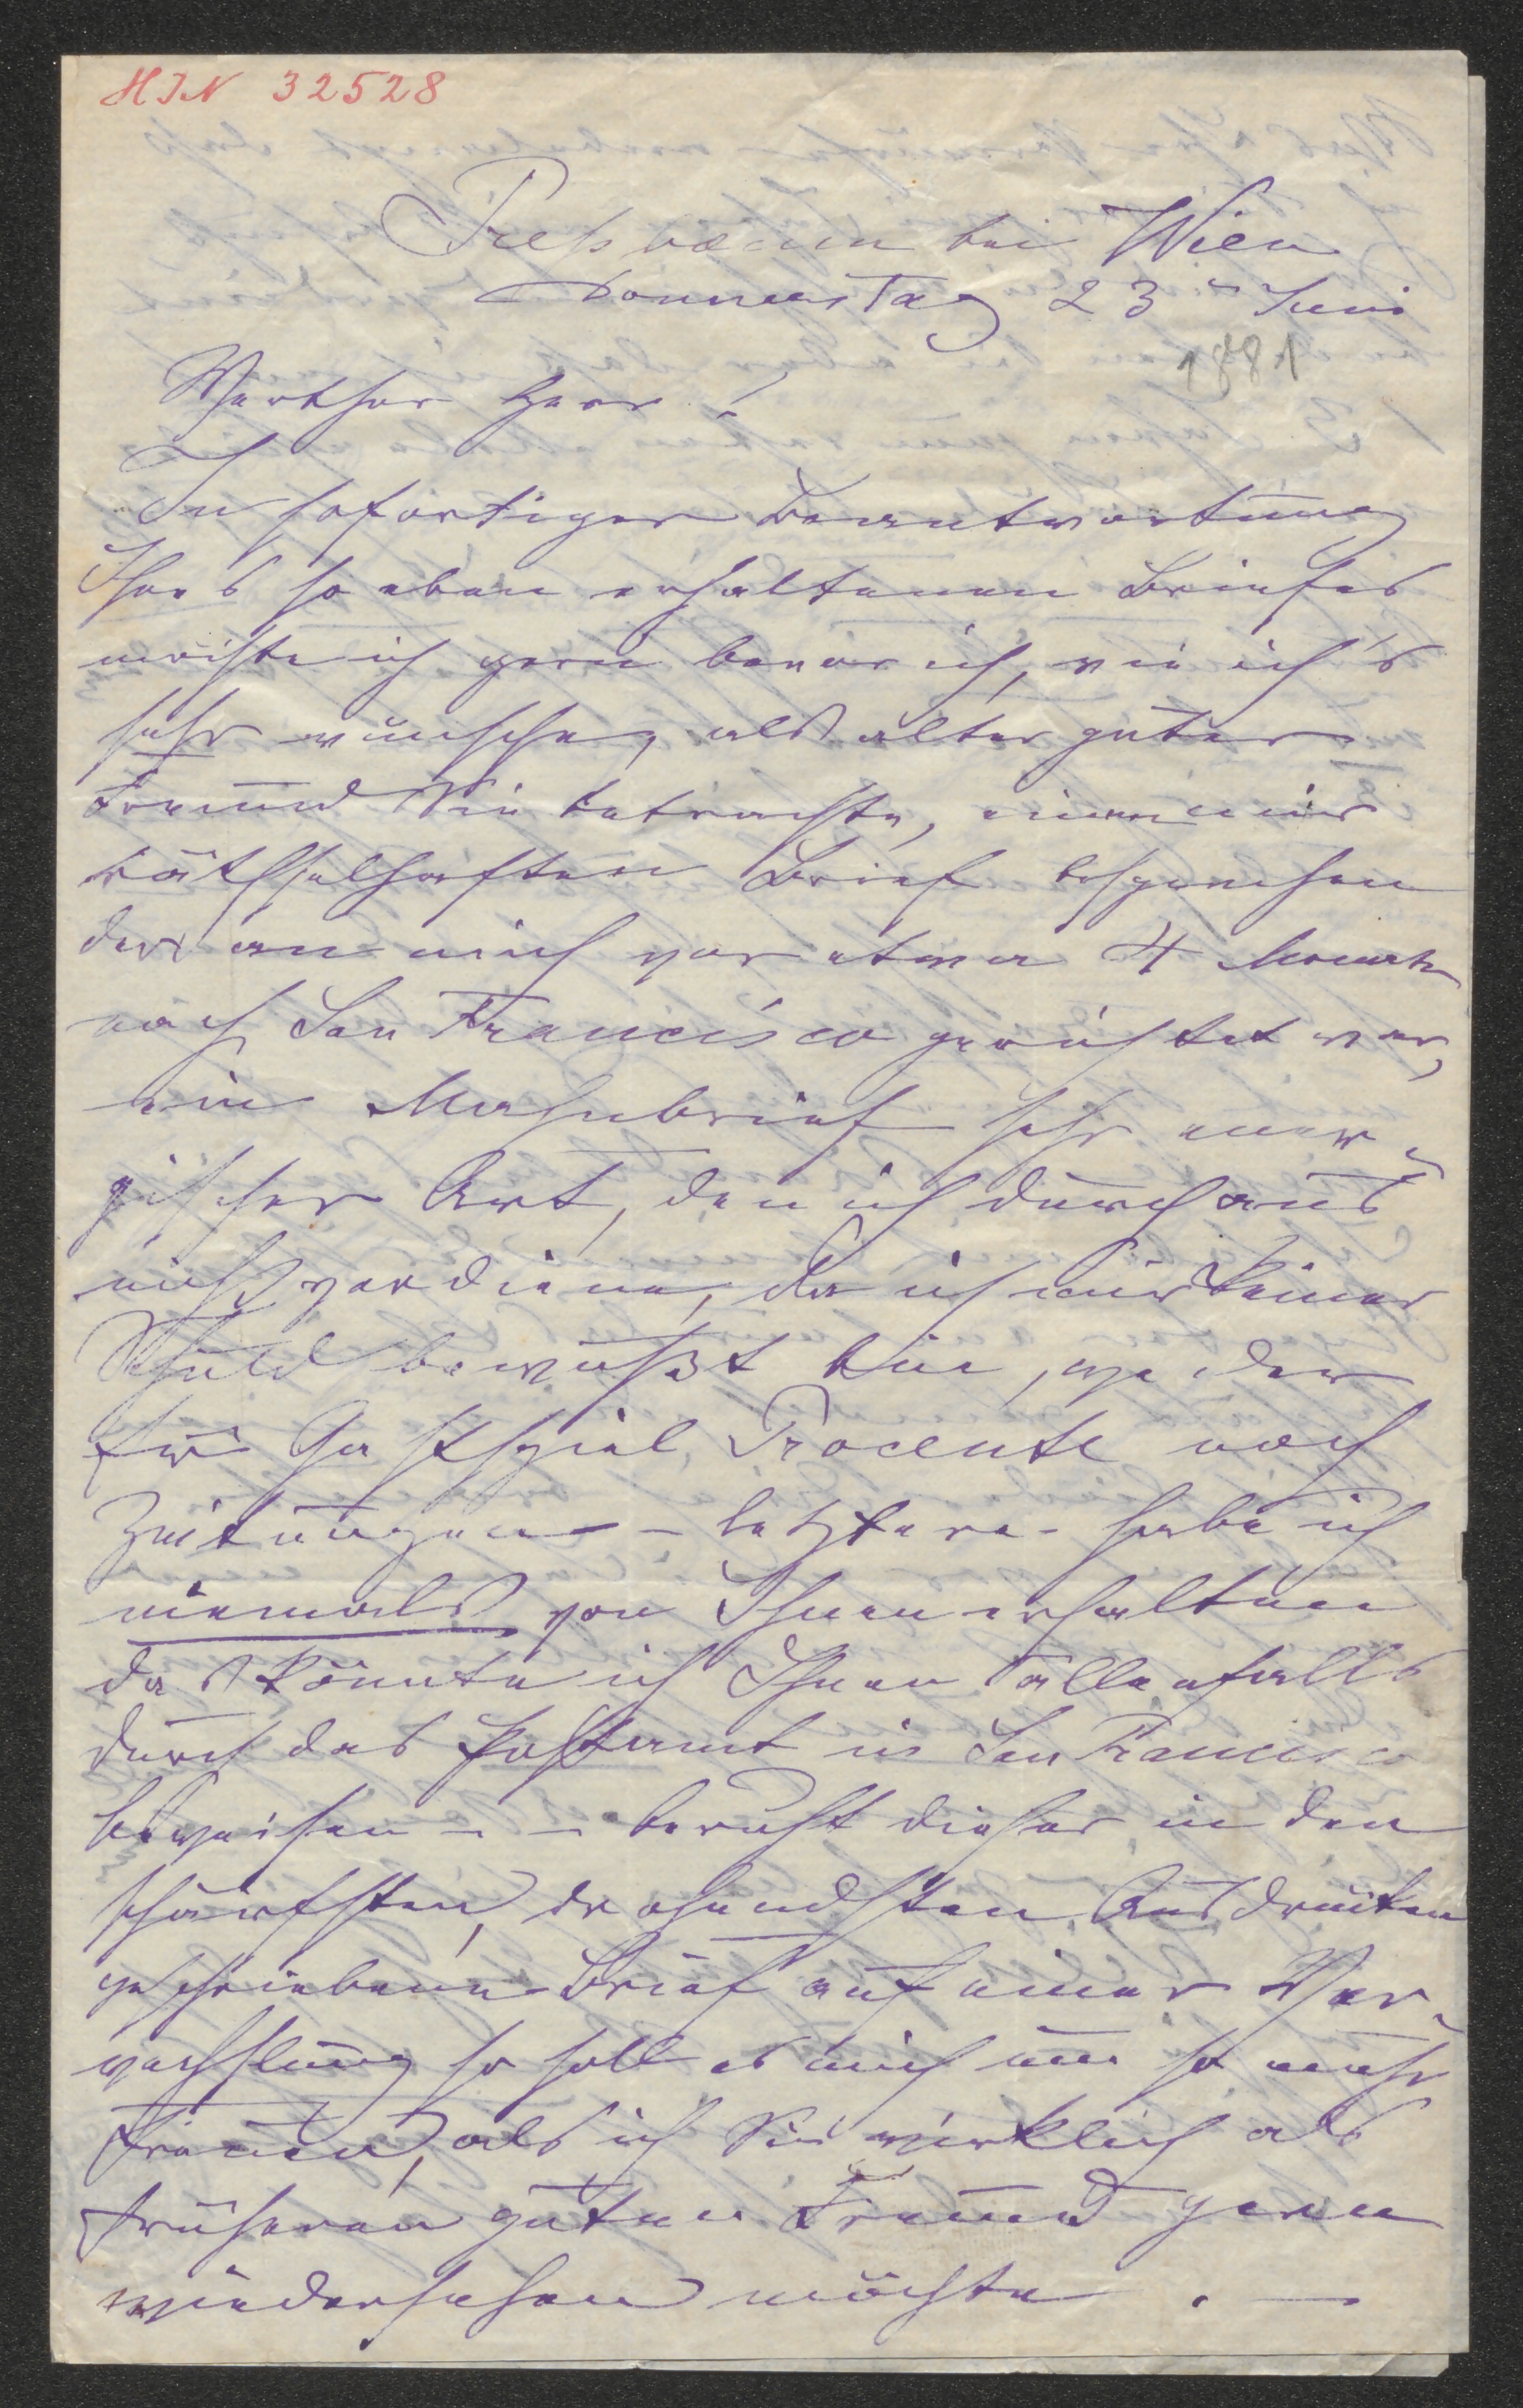 HIN 32528
Preßbaum bei Wien
Donnerstag 23 Juni
1881
Werther Herr!
In sofortiger Beantwortung
Ihres so eben erhaltenen Briefes
möchte ich gern bevor ich, wie ich's
sehr wünsche, als alter guter
Freund Sie betrachte, einen mir
räthselhaften Brief besprechen
der an mich vor etwa 4 Monate
nach San Francisco gerichtet war,
ein Mahnbrief sehr ener-
gischer Art, den ich durchaus
nicht verdiene, da ich mir keiner
Schuld bewußt bin, weder
für Gastspiel Procente noch
Zeitungen – letztere habe ich
niemals von Ihnen erhalten
das könnte ich Ihnen allenfalls
durch das Postamt in San Francisco
beweisen – – beruht dieser in den
schärfsten, drohendsten Ausdrücken
geschriebene Brief auf einer Ver-
wechslung so soll es mich um so mehr
freuen, als ich Sie wirklich als
früheren guten Freund gern
wiedersehen möchte. –